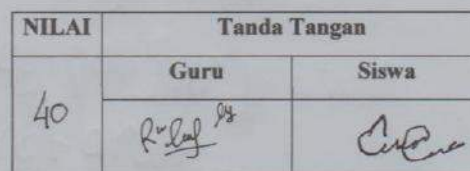 NILAI Tanda Tangan
Guru Siswa
40